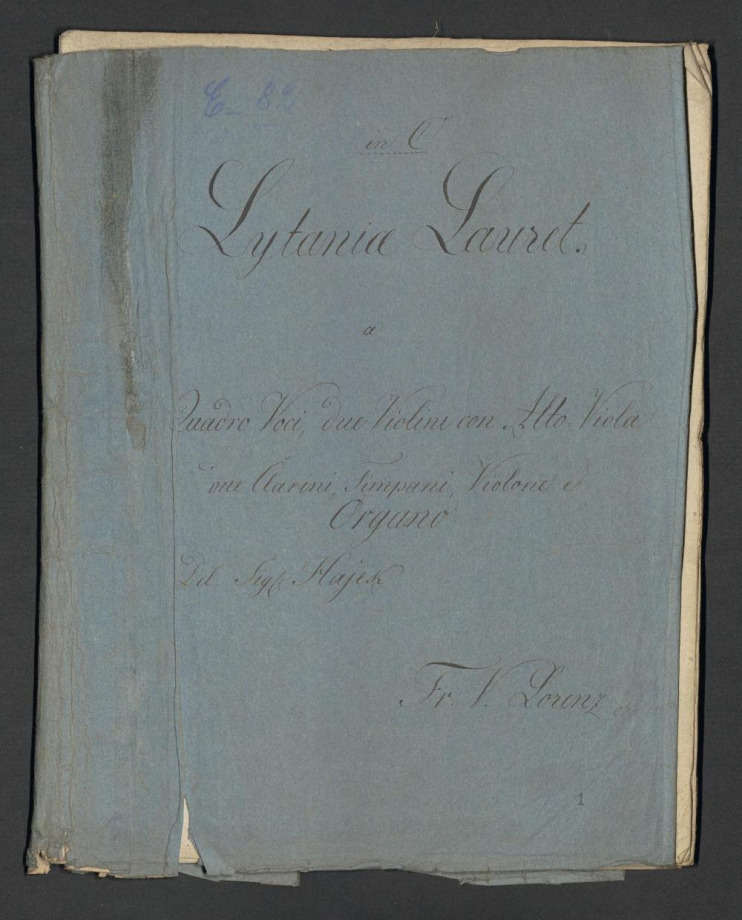 E 82
in C
Lytaniæ Lauret.
a
Quadro Voci, due Violini con Alto Viola
due Clarini, Timpani, Violone e
Organo
Del Sigr Hajek
Fr. V. Lorenz
1